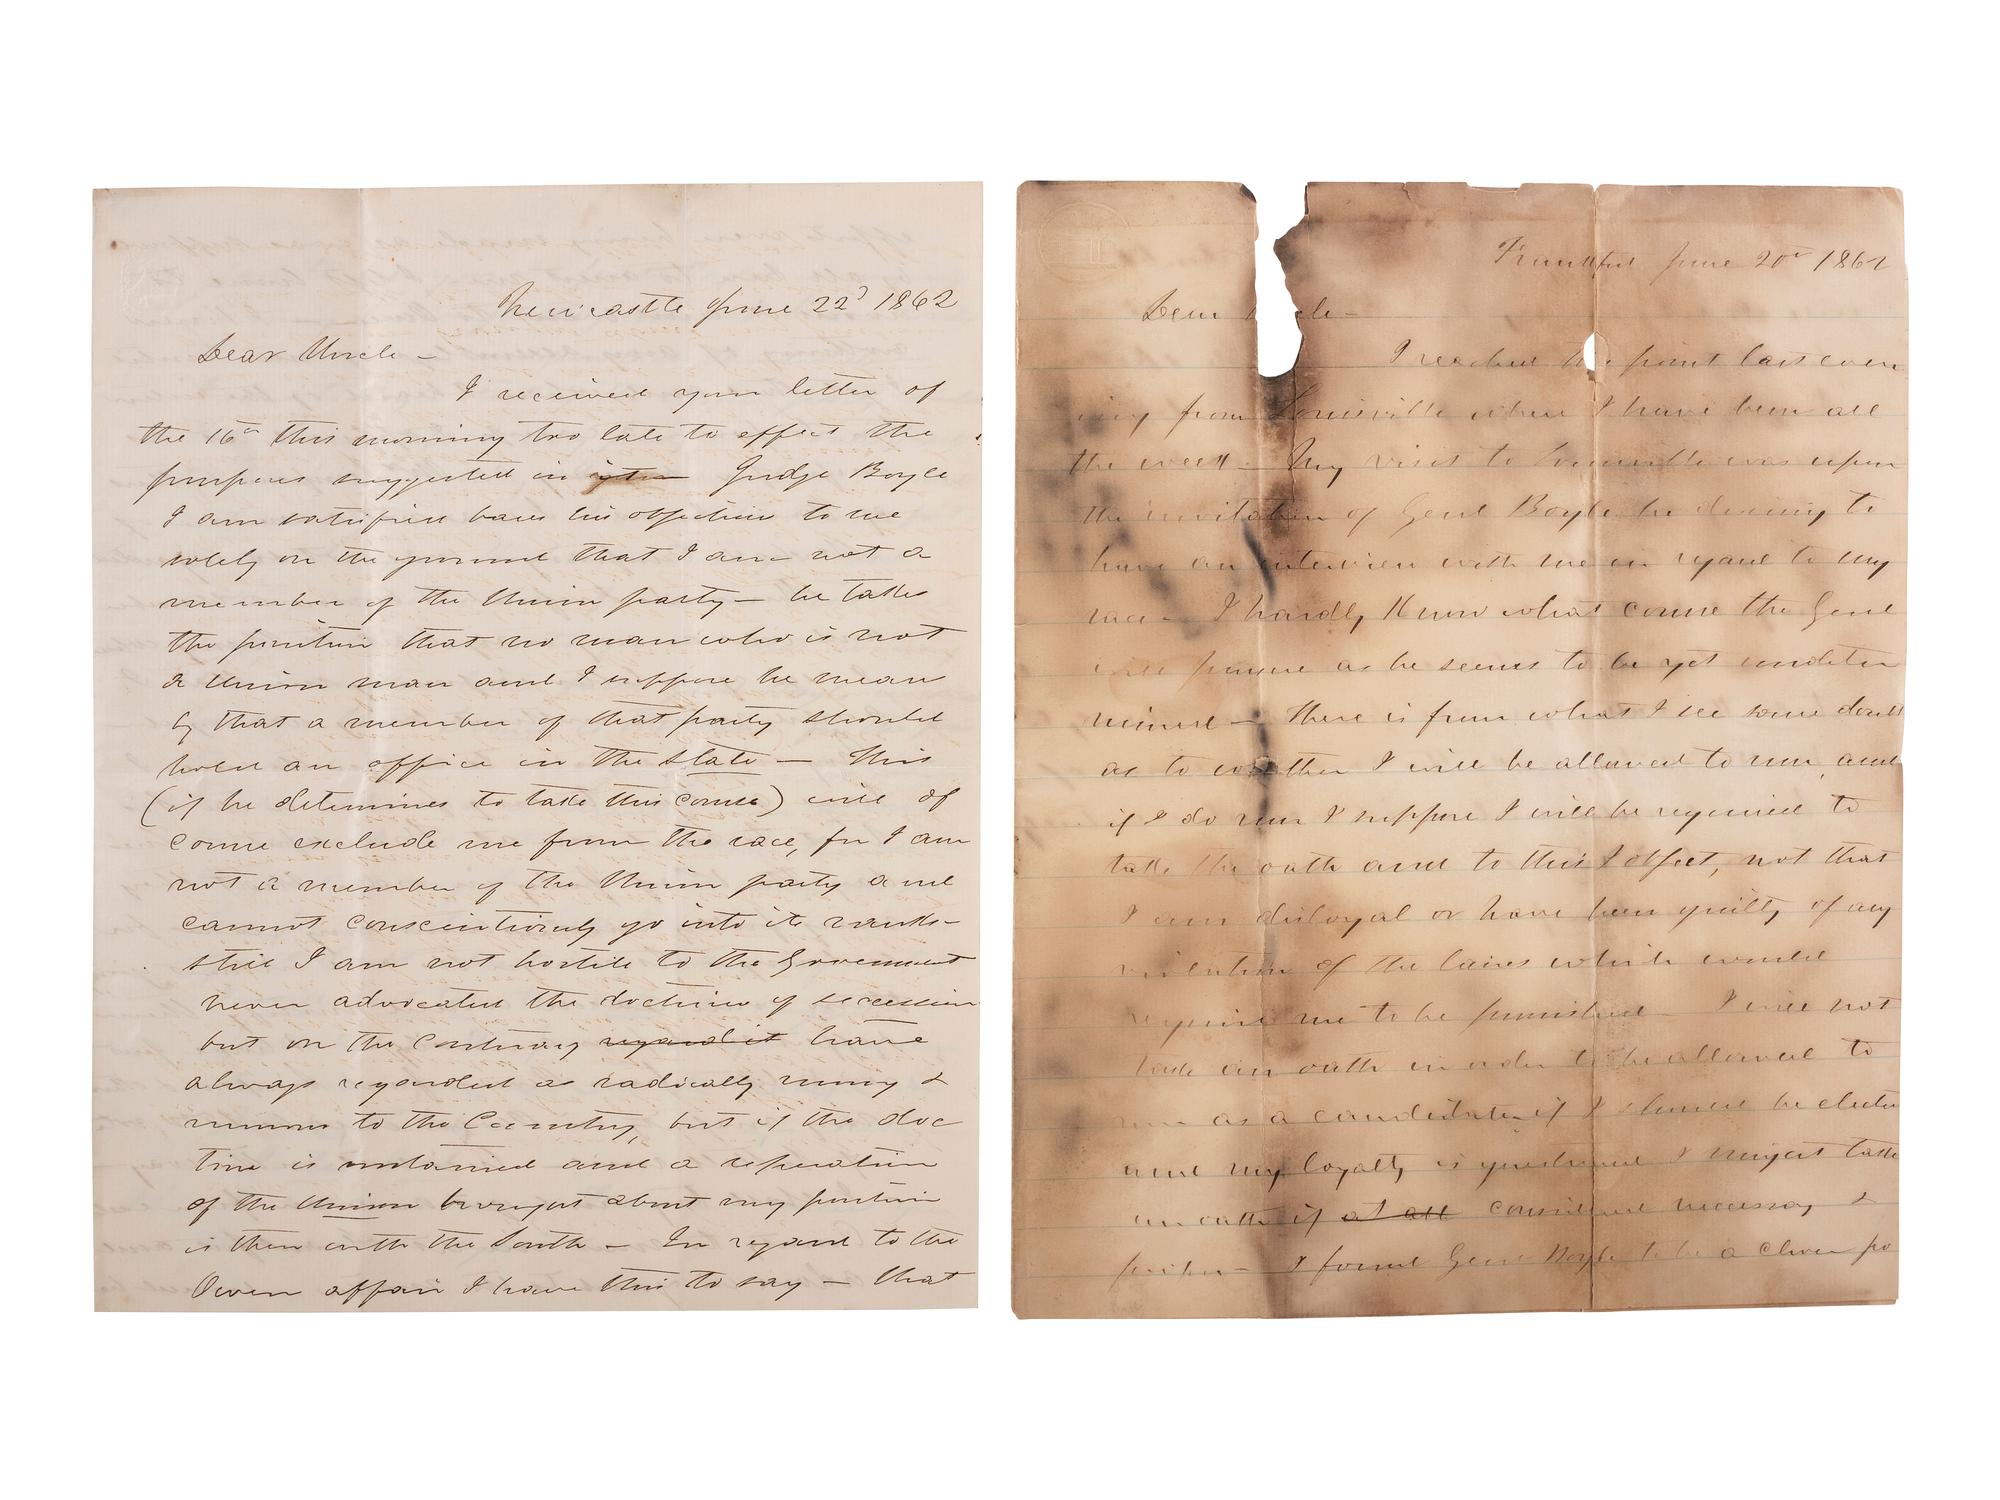 Newcastle June 22d 1862
Dear Uncle –
I received your letter of
the 16th this morning too late to effect the
purposes suggested in – Judge Boyle
I am satisfied bases his objection to me
solely on the ground that I am not a
member of the Union party – he takes
the position that no man who is not
a Union man and I suppose he mean
by that a member of that party should
hold an office in the State – This
(if he determines to take this course) will of
course exclude me from the race, for I am
not a member of the Union party and
cannot conscientiously go into its ranks –
still I am not hostile to the Government
never advocated the doctrine of secession
but on the Contrary regard it have
always regarded as radically wrong &
ruinous to the Country, but if the doc
trine is sustained and a seperation
of the Union brought about my position
is then with the South – In regard to the
Owen affair I have this to say – that
Frankfort June 20th 1862
Dear Uncle –
I reached this point last even
ing from Louisville where I have been all
the week – My visit to Louisville was upon
the invitation of Genl Boyle he desiring to
have an interview with me in regard to my
race – I hardly Know what course the Genl
will pursue as he seems to be yet undeter
mined – There is from what I see some doubt
as to whether I will be allowed to run, and
if I do run I suppose I will be required to
take the oath and to this I object, not that
I am disloyal or have been guilty of any
violation of the laws which would
require me to be punished – I will not
take an oath in order to be allowed to
run as a candidate, if I should be elected
and my loyalty is questioned I might take
an oath if at all considered necessary &
proper – I found Genl Boyle to be a clever po